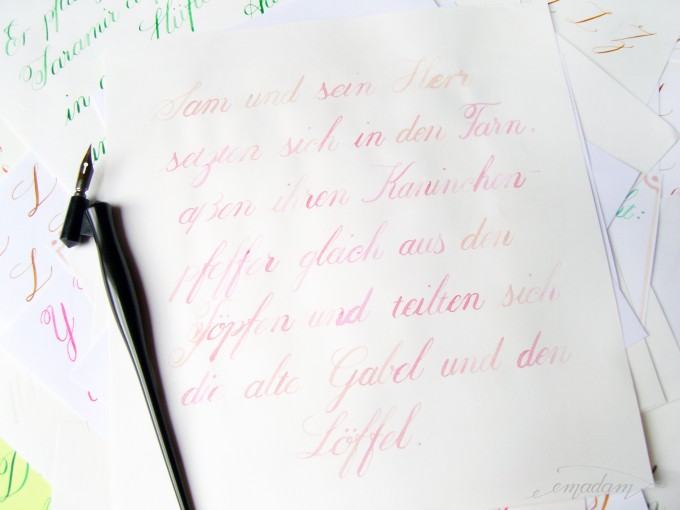 Er
Faramir
in
Sam und sein Herr
setzten sich in den Farn,
aßen ihren Kaninchen-
pfeffer gleich aus den
Töpfen und teilten sich
die alte Gabel und den
Löffel.
emadam